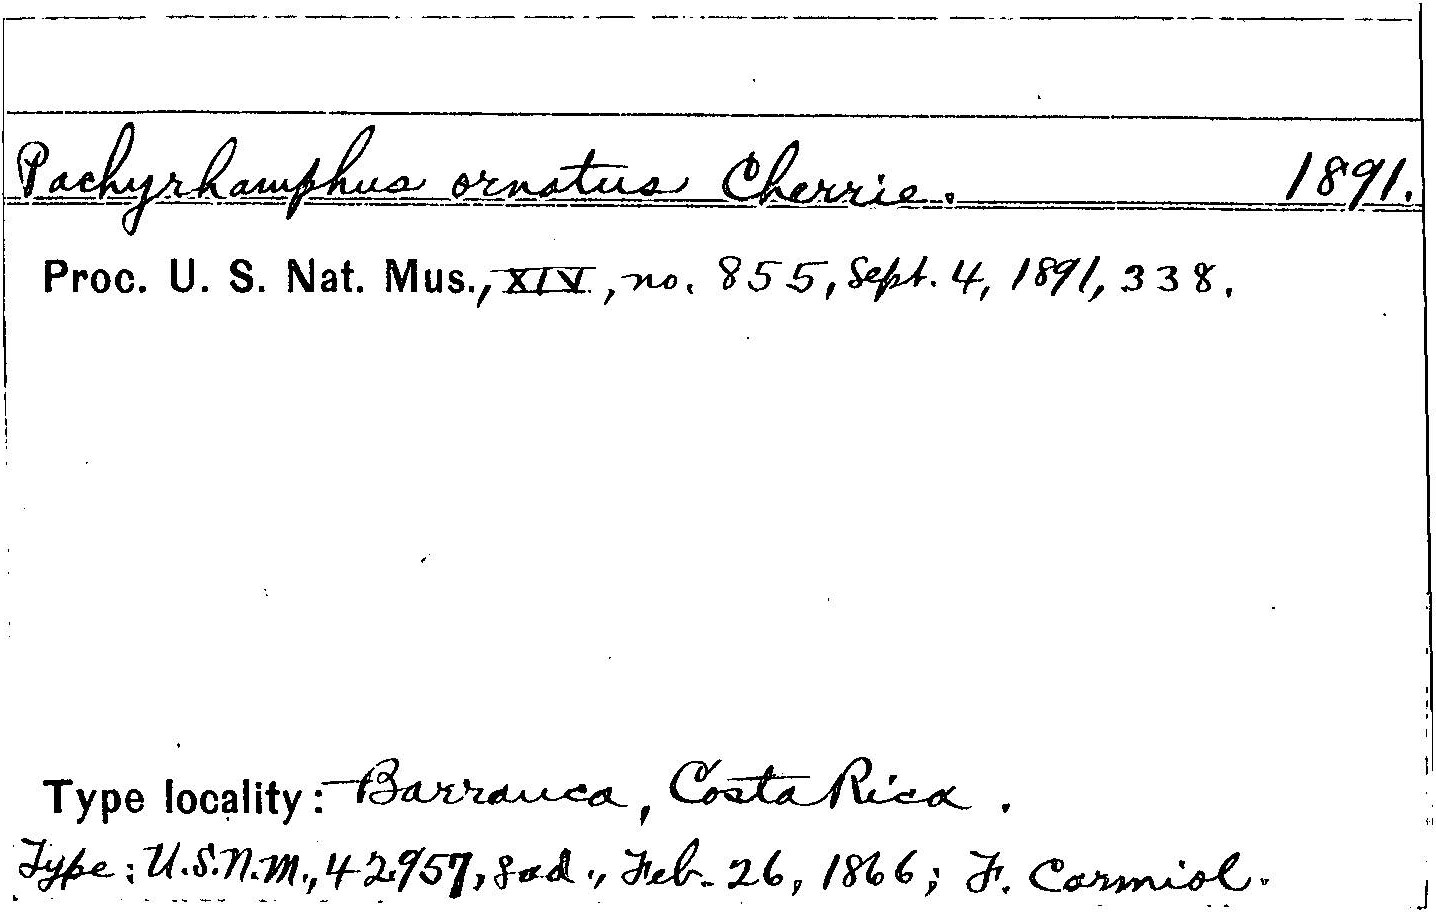 Pachyrhamphus ornatus Cherrie. 1891.
Proc. U. S. Nat. Mus., XIV, no. 855, Sept. 4, 1891, 338.
Type locality: Barranca, Costa Rica.
Type: U.S.N.M., 42957, ad., Feb. 26, 1866; F. Carmiol.